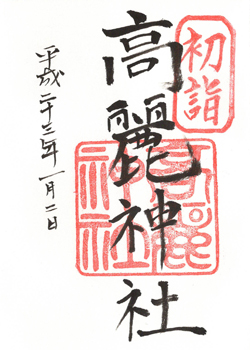 初詣
高麗神社
高麗神社
平成二十三年一月二日